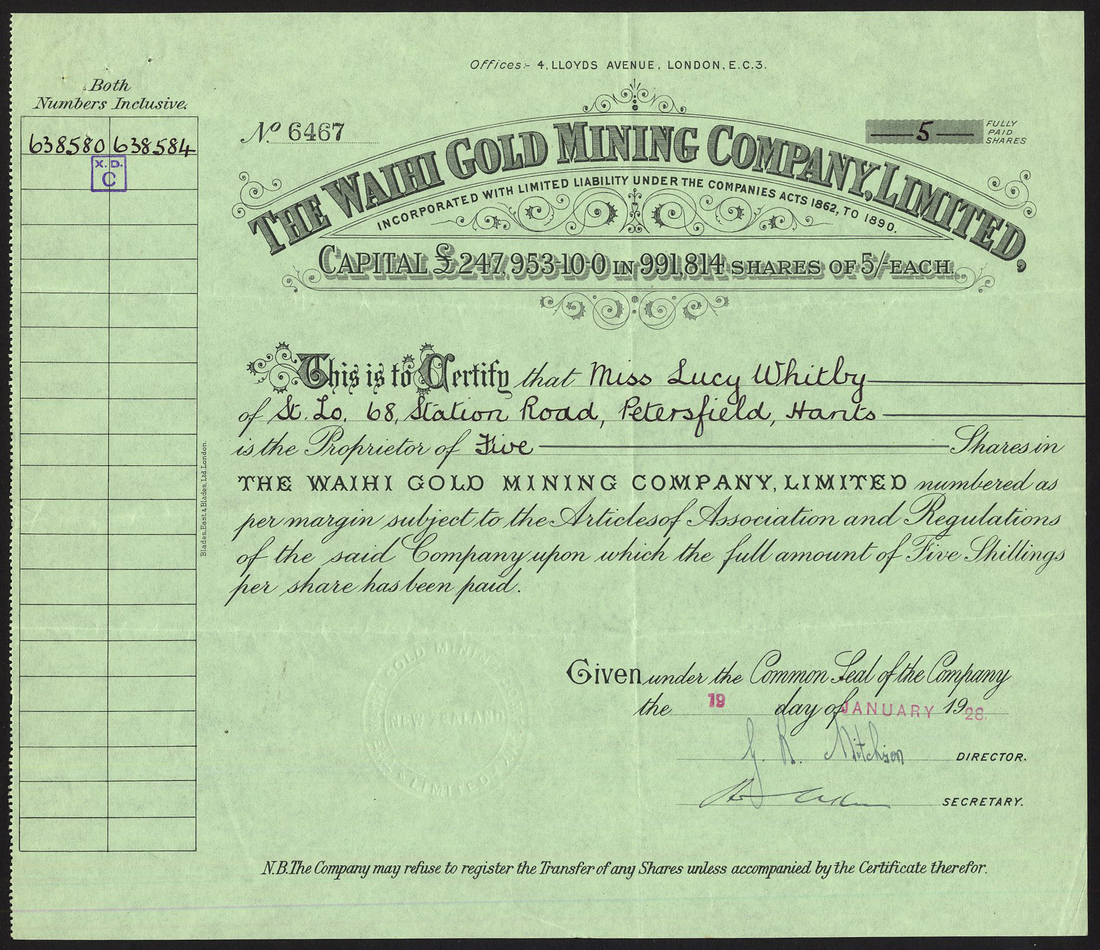 Offices:- 4, LLOYDS AVENUE, LONDON, E.C.3.
Both
Numbers Inclusive.
638580 638584
X. D.
C
No 6467
5
FULLY
PAID
SHARES
THE WAIHI GOLD MINING COMPANY, LIMITED,
INCORPORATED WITH LIMITED LIABILITY UNDER THE COMPANIES ACTS 1862, TO 1890.
CAPITAL £247,953-10-0 IN 991,814 SHARES OF 5/- EACH.
This is to Certify that Miss Lucy Whitby
of St. Lo. 68, Station Road, Petersfield, Hants
is the Proprietor of Five Shares in
THE WAIHI GOLD MINING COMPANY, LIMITED numbered as
per margin subject to the Articles of Association and Regulations
of the said Company upon which the full amount of Five Shillings
per share has been paid.
Blades, East & Blades, Ltd. London.
GOLD MINING
NEW ZEALAND
LIMITED
Given under the Common Seal of the Company
the 19 day of JANUARY 1928.
G. R. Mitchison DIRECTOR.
SECRETARY.
N.B. The Company may refuse to register the Transfer of any Shares unless accompanied by the Certificate therefor.